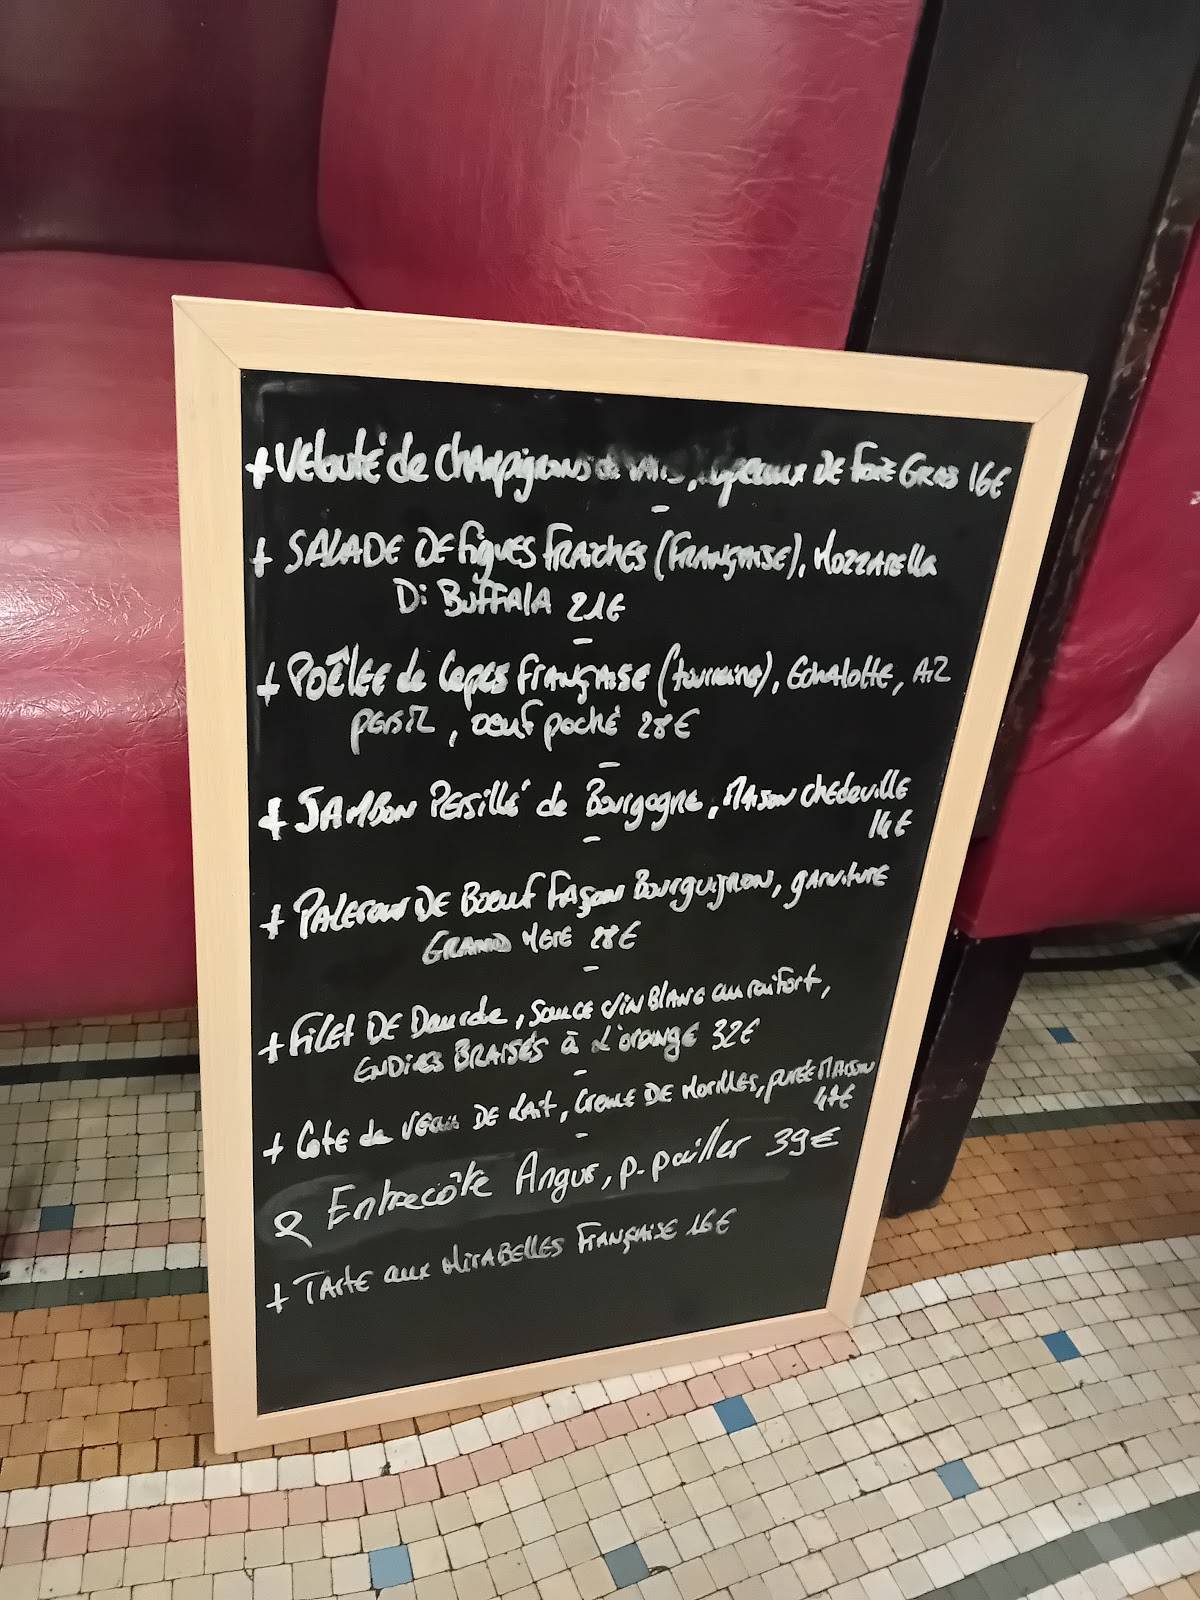 + Velouté de Champignons de Paris, copeaux de Foie Gras 16€
+ SALADE DE Figues FRAîCHES (FRANçAISE), Mozzarella
Di BUFFALA 21€
+ POÊLEE de Cepes FRANçAISE (touraine), Echalotte, Ail
PERSIL, oeuf poché 28€
+ JAMBON PERSillé de Bourgogne, MAISON Chedeville
14€
+ PALERON DE Boeuf Façon Bourguignon, garniture
GRAND MERE 28€
+ Filet DE Daurade, Sauce Vin BLANC au raifort,
ENDIVES BRAISÉS à L'orange 32€
+ Cote de Veau DE Lait, Creme DE Morilles, purée MAISON
& Entrecôte Angus, p. pailler 39€
+ TARTE aux MIRABELLES FRANçAISE 16€